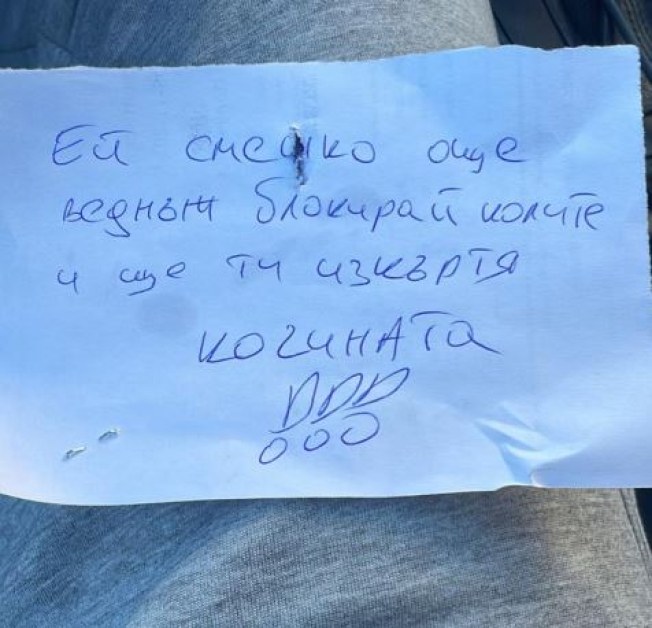 Ей смешко още
веднъж блокирай колите
и ще ти изкъртя
кочината
!!!